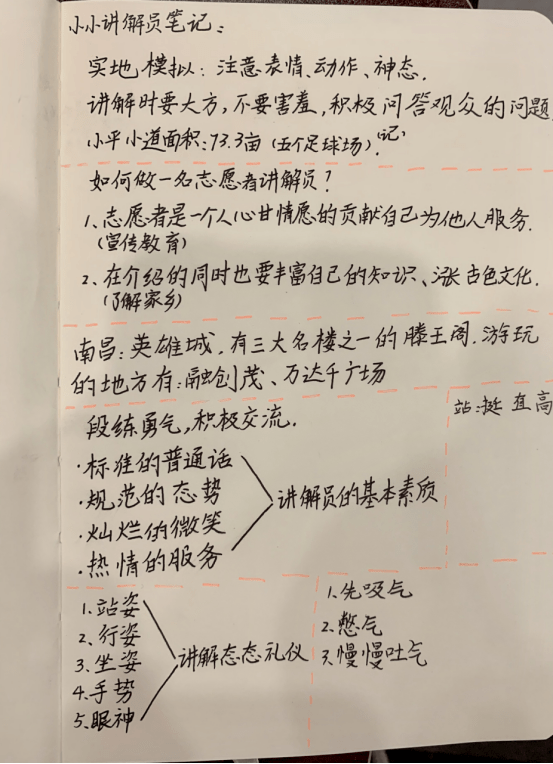 小小讲解员笔记：
实地模拟：注意表情、动作、神态．
讲解时要大方，不要害羞，积极问答观众的问题
小平小道面积：73.3亩（五个足球场）．（记）
如何做一名志愿者讲解员？
1、志愿者是一个人心甘情愿的贡献自己为他人服务．
（宣传教育）
2、在介绍的同时也要丰富自己的知识、涨古色文化．
（了解家乡）
南昌：英雄城，有三大名楼之一的滕王阁．游玩
的地方有：融创茂、万达千广场
段练勇气，积极交流．
站：挺 直 高
·标准的普通话
·规范的态势
·灿烂的微笑
·热情的服务
讲解员的基本素质
1.站姿
2、行姿
3、坐姿
4.手势
5.眼神
讲解态态礼仪
1、先吸气
2、憋气
3、慢慢吐气